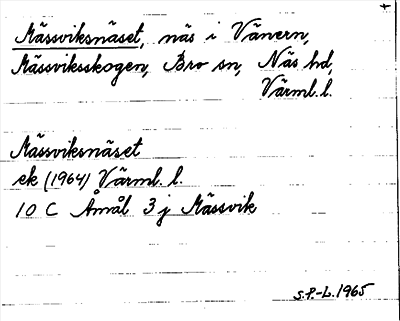 Mässviksnäset, näs i Vänern,
Mässviksskogen, Bro sn, Näs hd,
Värml. l.
Mässviksnäset
ek (1964) Värml. l.
10 C Åmål 3 j Mässvik
S.P.-L. 1965